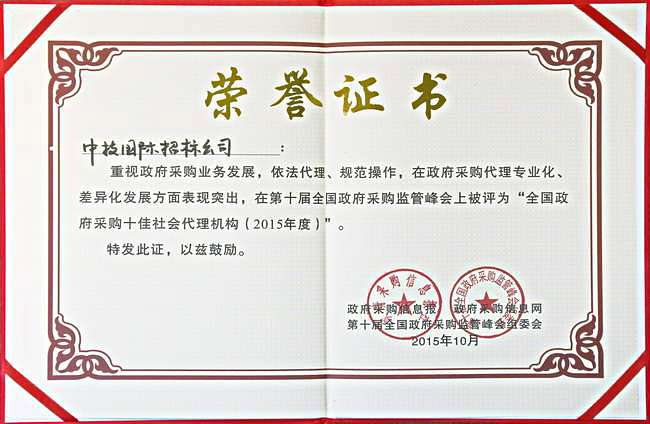 荣誉证书
中技国际招标公司：
重视政府采购业务发展，依法代理、规范操作，在政府采购代理专业化、
差异化发展方面表现突出，在第十届全国政府采购监管峰会上被评为“全国政
府采购十佳社会代理机构（2015年度）”。
特发此证，以兹鼓励。
政府采购信息报 政府采购信息网
第十届全国政府采购监管峰会组委会
2015年10月